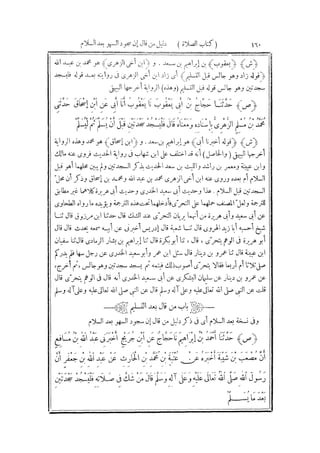 ١٦٠ (كتاب الصلاة) دليل من قال إن سجود السهو بعد السلام
(ش) (يعقوب) بن إبراهيم بن سعد. و (ابن أخى الزهرى) هو محمد بن عبد الله
(قوله زاد وهو جالس قبل التسليم) أى زاد ابن أخى الزهرى فى روايته بعد قوله فليسجد
سجدتين وهو جالس قوله قبل التسليم (وهذه) الرواية أخرجها البيهقى
(ص) حَدَّثَنَا حَجَّاجٌ نَا يَعْقُوبُ أَنَا أَبِى عَنِ ابْنِ إِسْحَاقَ حَدَّثَنِى
مُحَمَّدُ بْنُ مُسْلِمٍ الزُّهْرِىُّ بِإِسْنَادِهِ وَمَعْنَاهُ قَالَ فَلْيَسْجُدْ سَجْدَتَيْنِ قَبْلَ أَنْ يُسَلِّمَ ثُمَّ لْيُسَلِّمْ
(ش) (قوله أخبرنا أبى) هو إبراهيم بن سعد. و (ابن إسحاق) هو محمد وهذه الرواية
أخرجها البيهقى (والحاصل) أنه قد اختلف على ابن شهاب فى رواية الحديث فروى عنه مالك
وابن عيينة ومعمر بن راشد والليث بن سعد الحديث بذكر السجدتين ولم يبين محلهما أهو قبل
السلام أم بعده وروى عنه ابن أخى الزهرى محمد بن عبد الله ومحمد بن إسحاق وذكر أن محل
السجدتين قبل السلام. هذا وحديث أبى سعيد الخدرى وحديث أبى هريرة كلاهما غير مطابق
للترجمة
عن أبى سعيد وأبى هريرة من أنهما يريان التحرى عند الشك قال حدثنا ابن مرزوق قال ثنا
أبو هريرة فى الوهم يتحرى
ابن عيينة قال ثنا عمرو بن دينار قال سئل ابن عمر وأبو سعيد الخدرى عن رجل سها فلم يدر كم
صلى ثلاثا أم أربعا فقالا يتحرى أصوب ذلك فيتمه ثم يسجد سجدتين وهو جالس
عن عمرو بن دينار عن سليمان اليشكرى عن أبى سعيد الخدرى أنه قال فى الوهم يتحرى قال
قلت عن النبى صلى الله تعالى عليه وعلى آله وسلم قال عن النبى صلى الله تعالى عليه وعلى آله وسلم
باب من قال بعد التسليم
وفى نسخة بعد السلام أى فى ذكر دليل من قال إن سجود السهو بعد السلام
(ص) حَدَّثَنَا أَحْمَدُ بْنُ إِبْرَاهِيمَ نَا حَجَّاجٌ عَنِ ابْنِ جُرَيْجٍ أَخْبَرَنِى عَبْدُ اللهِ بْنُ مُسَافِعٍ
أَنَّ مُصْعَبَ بْنَ شَيْبَةَ أَخْبَرَهُ عَنْ عُتْبَةَ بْنِ مُحَمَّدِ بْنِ الْحَارِثِ عَنْ عَبْدِ اللهِ بْنِ جَعْفَرٍ أَنَّ
رَسُولَ اللهِ صَلَّى اللهُ تَعَالَى عَلَيْهِ وَعَلَى آلِهِ وَسَلَّمَ قَالَ مَنْ شَكَّ فِى صَلَاتِهِ فَلْيَسْجُدْ سَجْدَتَيْنِ
بَعْدَ مَا يُسَلِّمُ